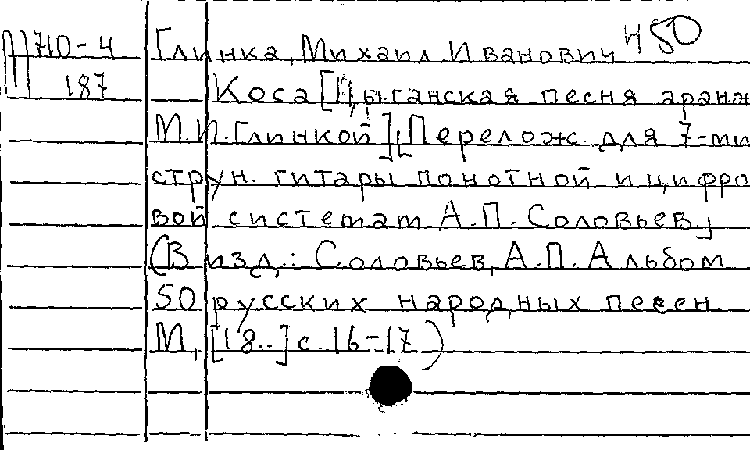 П 710-4 Глинка, Михаил Иванович 450
187 Коса [Цыганская песня аранж
М.И.Глинкой] [Перелож. для 7-ми
струн. гитары по нотной и цифро
вой системам А.П. Соловьев]
(В изд.: Соловьев, А.П. Альбом
50 русских народных песен
М., [18..] с 16-17)